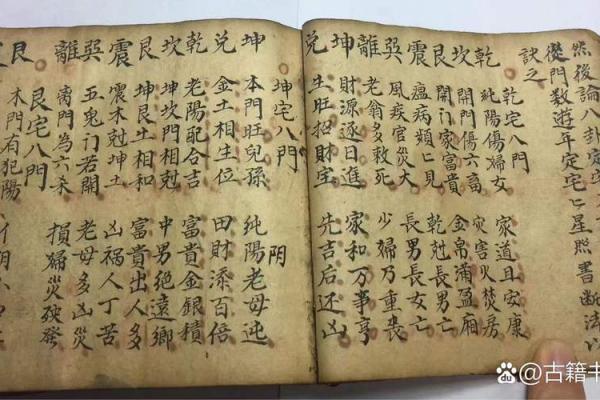 然後論八卦定
從門数遊年定宅七星照書断法以
訣之
乾宅八門
乾 純陽傷婦女 家道且安康
坎 開門傷六畜 灾害火焚房
艮 開門家富貴 金帛滿盈廂
震 瘟病頻匕見 乾尅長男亡
巽 風疾官災火 長男長女亡
離 老翁多敎死 少婦乃重喪
坤 財源逐日進 家和万事亨
兌 生旺招財宝 先吉后还凶
坤宅八門 阴
坤 本門旺兒孫 純陽老母迍
兌 金土相生位 田財添百倍
乾 老陽配合吉 富貴金銀積
坎 坤坎門相尅 中男絕遠鄉
艮 坤艮土相和 富貴出人多
震 震木尅坤土 凶禍人丁苦
巽 五鬼门若開 老母多凶災
離 离門為六杀 損婦災殃發
艮宅八門
艮 本門有犯陽
@古籍书